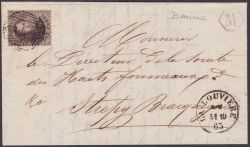 Baume
M
Monsieur
Le Directeur de la Societe
des Hauts fourneaux
de Strépy Bracqu
LA LOUVIERE